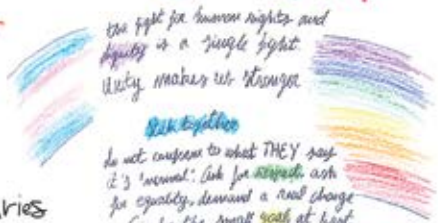 the fight for human rights and
dignity is a single fight.
Unity makes us stronger
Stick together
do not conform to what THEY say
it's "normal". Ask for respect, ask
for equality, demand a real change
the small goal at hand
ries